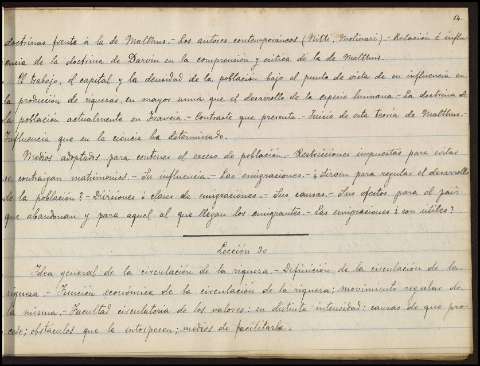 14.
doctrinas frente á la de Malthus.- Los autores contemporáneos (Nitti, Molinari).- Relación é influ-
encia de la doctrina de Darwin en la comprensión y crítica de la de Malthus.
El trabajo, el capital y la densidad de la población bajo el punto de vista de su influencia en
la producción de riquezas, en mayor suma que el desarrollo de la especie humana.- La doctrina de
la población actualmente en Francia.- Contraste que presenta.- Juicio de esta teoría de Malthus.-
Influencia que en la ciencia ha determinado.
Medios adoptados para contener el exceso de población.- Restricciones impuestas para evitar
se contraigan matrimonios.- Su influencia.- Las emigraciones.- ¿Sirven para regular el desarrollo
de la población?- Divisiones ó clases de emigraciones.- Sus causas.- Sus efectos para el país
que abandonan y para aquel al que llegan los emigrantes.- Las emigraciones ¿son útiles?
Lección 30
Idea general de la circulación de la riqueza.- Definición de la circulación de la
riqueza.- Función económica de la circulación de la riqueza; movimiento regular de
la misma.- Facultad circulatoria de los valores: su distinta intensidad: causas de que pro-
cede; obstáculos que la entorpecen; modos de facilitarla.